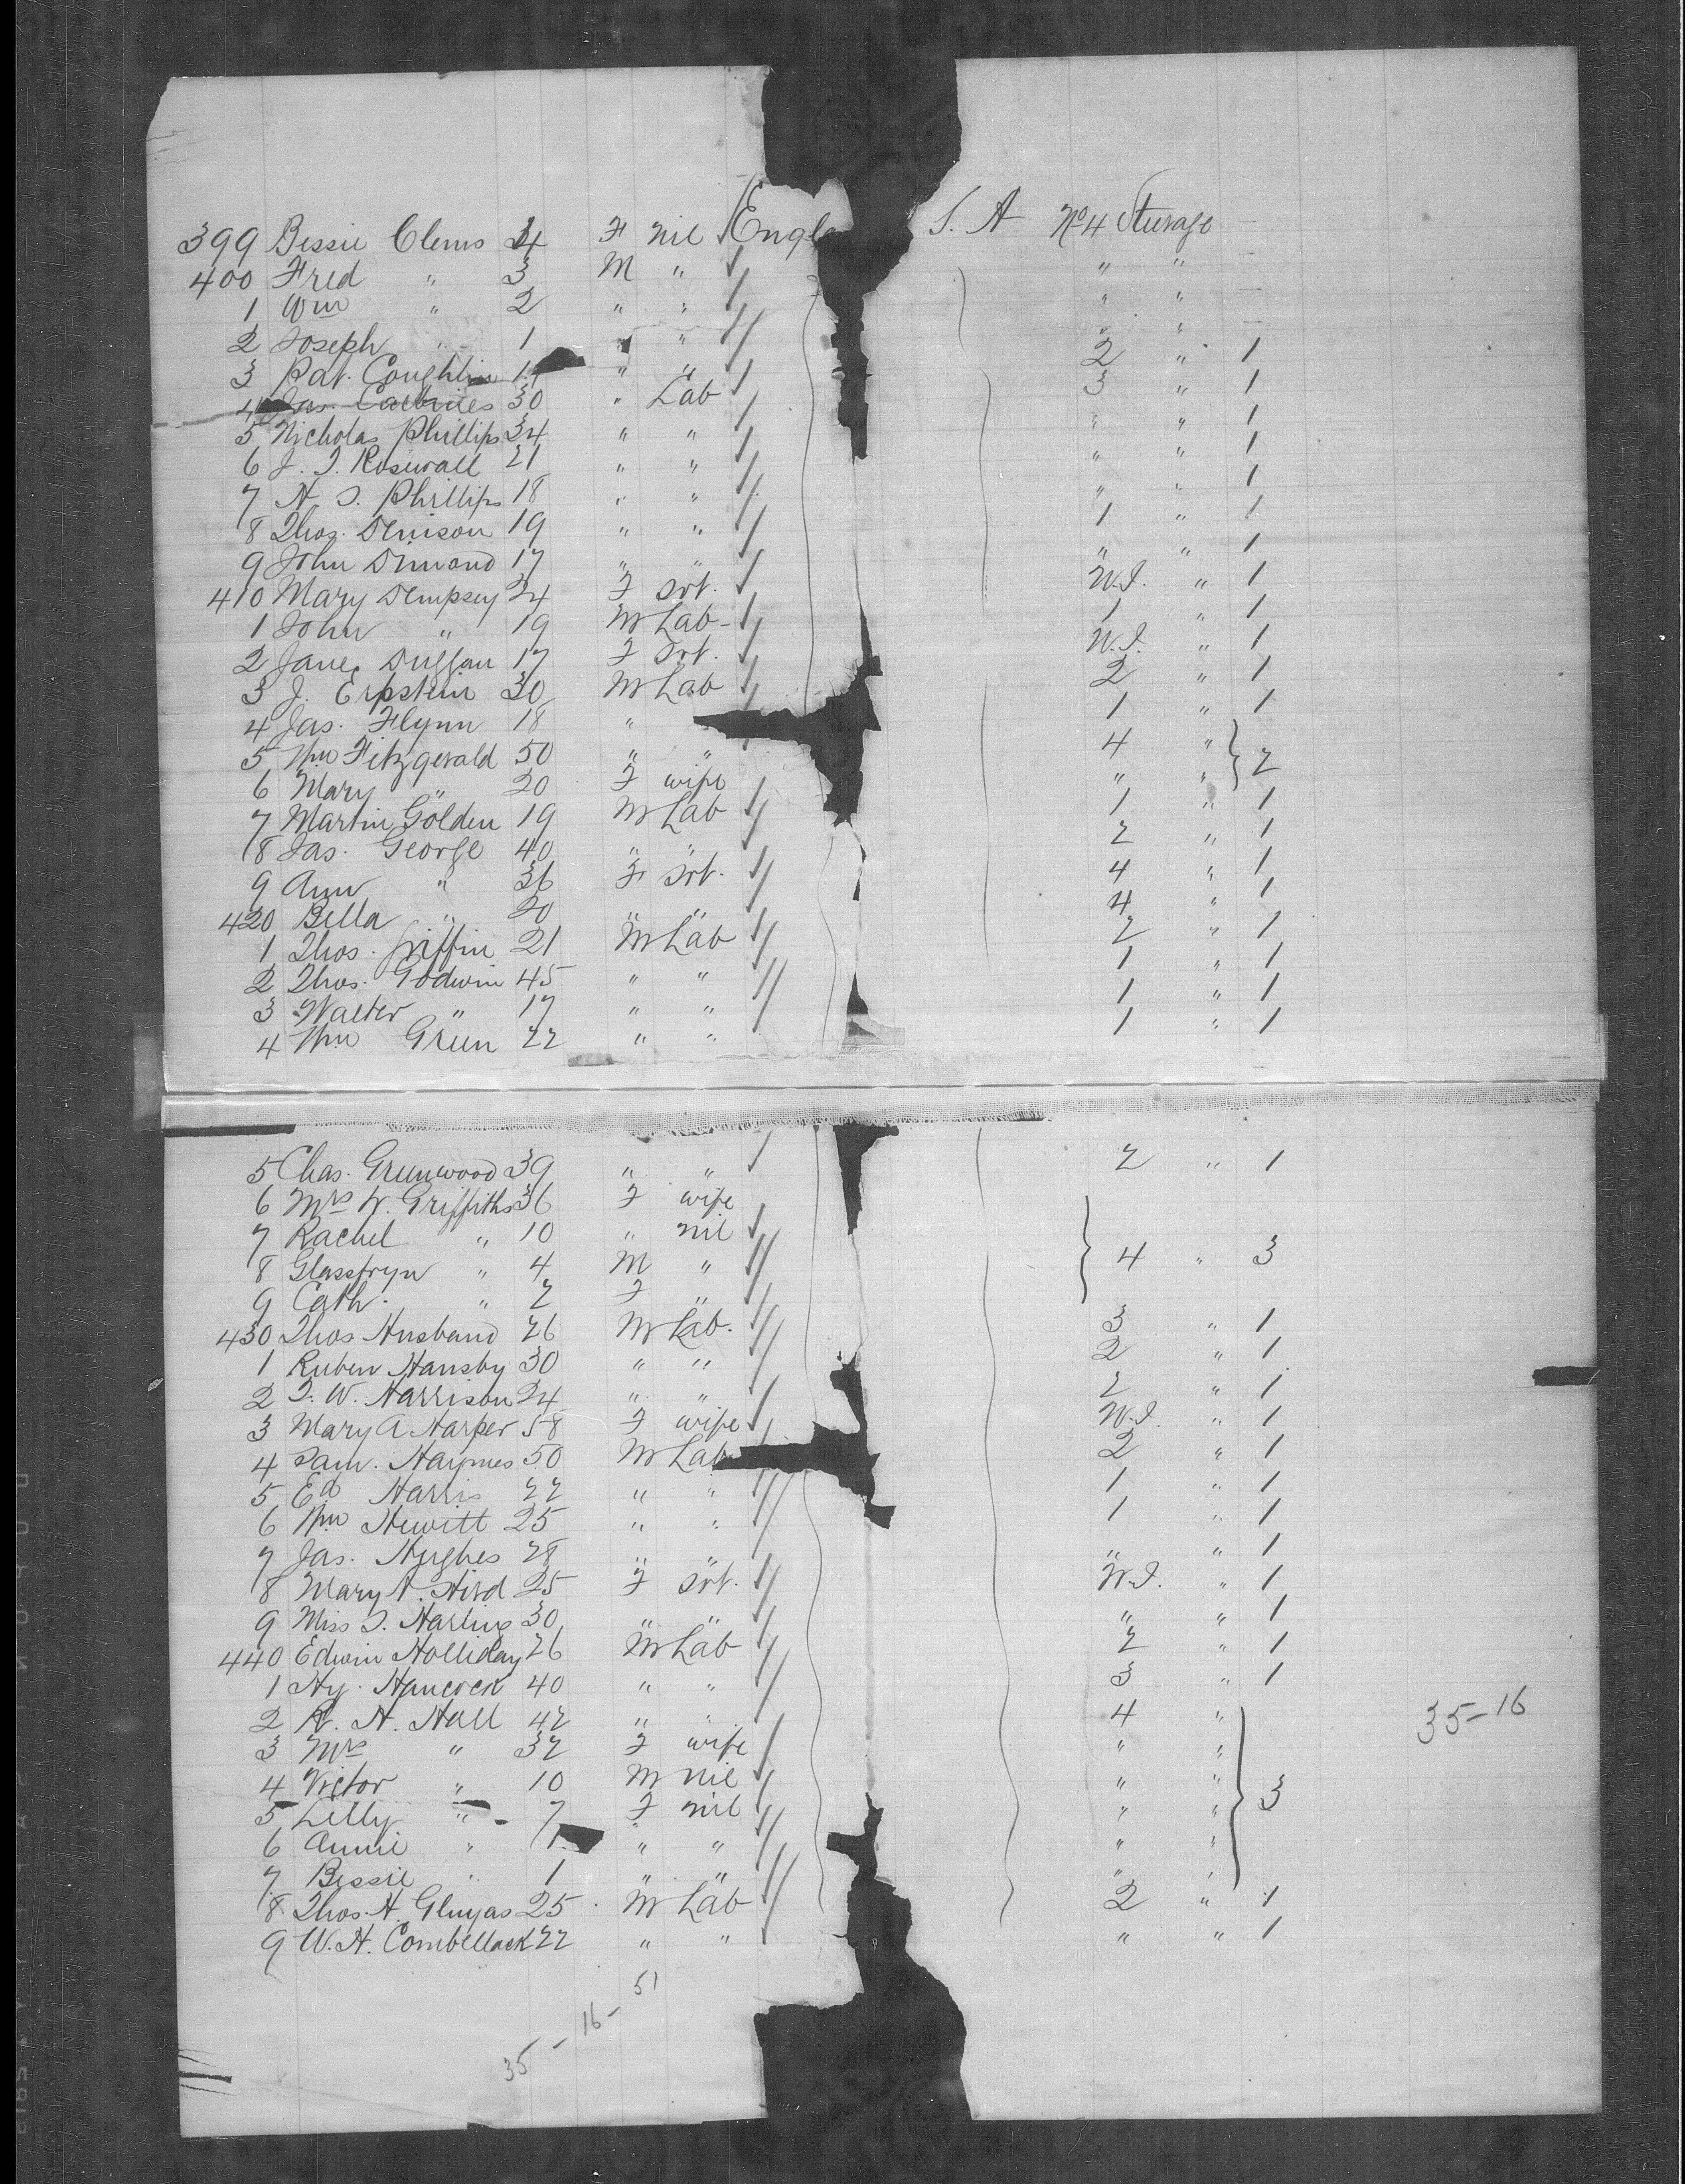 399 Bessie Clems 34 F nil Engla S. A No 4 Sturage —
400 Fred " 3 M " " " —
1 Wm " 2 " " " " —
2 Joseph " 1 " " " " —
3 Pat. Coughlin " " 2 " 1
4 Jas. 30 " Lab 3 " 1
5 Nicholas Phillips 34 " " " " 1
6 J. T. Rosewall 21 " " " " 1
7 N. S. Phillips 18 " " " " 1
8 Thos. Denison 19 " " 1 " 1
9 John Dimond 17 " " " " 1
410 Mary Dempsey 24 F Srt. W.I. " 1
1 John " 19 M Lab 1 " 1
2 Jane Duggan 17 F Srt. W.I. " 1
3 J. Erpstein 30 M Lab 2 " 1
4 Jas. Flynn 18 " 1 " 1
5 Wm Fitzgerald 50 " " 4 " } 2
6 Mary " 20 F wife " "
7 Martin Golden 19 M Lab 1 " 1
8 Jas. George 40 " " 2 " 1
9 Ann " 36 F Srt. 4 " 1
420 Bella " 20 " " 4 " 1
1 Thos. Griffin 21 M Lab 2 " 1
2 Thos. Godwin 45 " " 1 " 1
3 Walter " 17 " " 1 " 1
4 Wm Green 22 " " 1 " 1
5 Chas. Greenwood 39 " " 2 " 1
6 Mrs W. Griffiths 36 F wife
7 Rachel " 10 " nil
8 Glassfryn " 4 M " } 4 " 3
9 Cath. " 2 F "
430 Thos Husband 26 M Lab. 3 " 1
1 Ruben Hansby 30 " " 2 " 1
2 T. W. Harrison 24 " " 2 " 1
3 Mary A Harper 58 F wife W.I. " 1
4 Sam. Haymes 50 M Lab 2 " 1
5 Ed Harris 22 " " 1 " 1
6 Wm Hewitt 25 " " 1 " 1
7 Jas. Hughes 28 " " " " 1
8 Mary A. Hird 25 F Srt. W.I. " 1
9 Miss S. Harling 30 " " " " 1
440 Edwin Holliday 26 M Lab 2 " 1
1 Hy. Hancock 40 " " 3 " 1
2 R. H. Hall 42 " " 4 " 35-16
3 Mrs " 32 F wife " "
4 Victor " 10 M nil " "
5 Lilly " 7 F nil " " } 3
6 Annie " " " " "
7 Bessie " 1 " " " "
8 Thos. H. Gluyas 25 M Lab 2 " 1
9 W. H. Combellack 22 " " " " 1
35 - 16 - 51